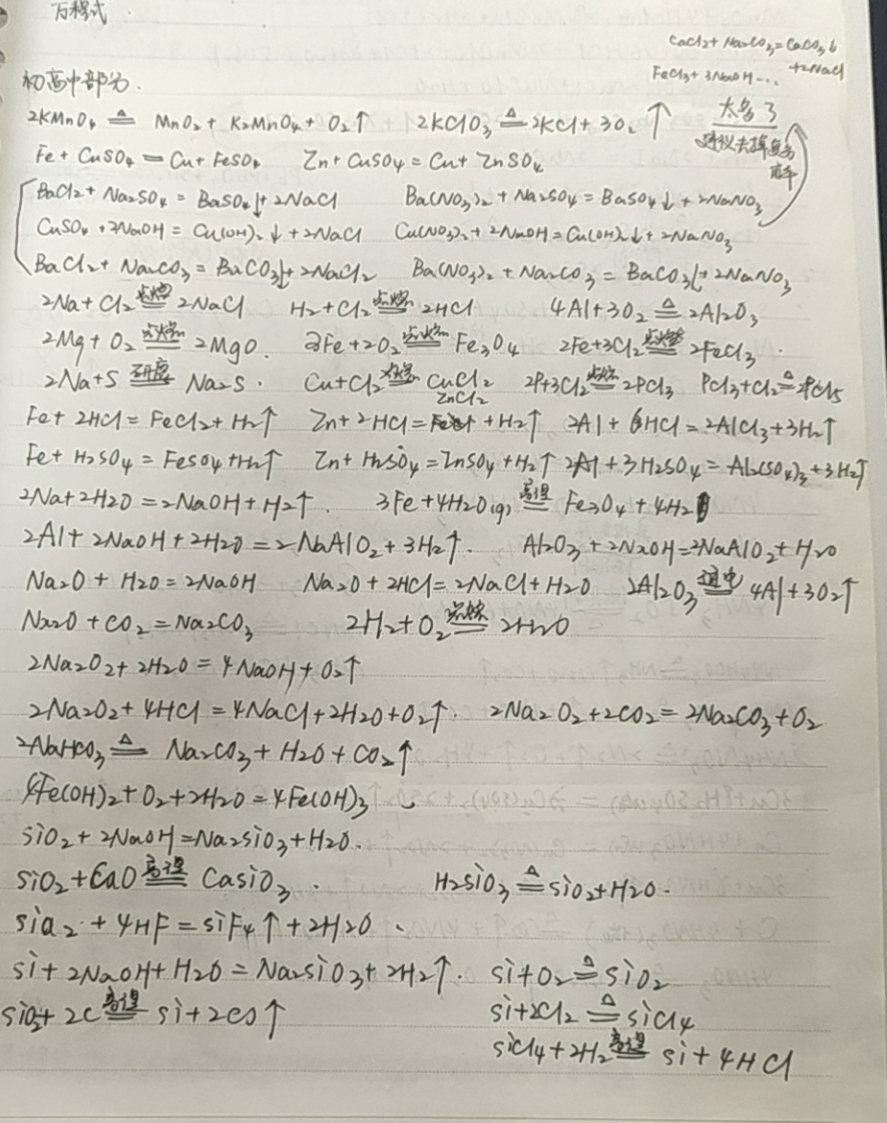 方程式.
CaCl2 + Na2CO3 = CaCO3↓
+2NaCl
FeCl3 + 3NaOH - ...
初高中部分.
2KMnO4 ≜ MnO2 + K2MnO4 + O2↑ 2KClO3 ≜ 2KCl + 3O2↑ 太多了
建议去掉
Fe + CuSO4 = Cu + FeSO4 Zn + CuSO4 = Cu + ZnSO4
BaCl2 + Na2SO4 = BaSO4↓ + 2NaCl Ba(NO3)2 + Na2SO4 = BaSO4↓ + 2NaNO3
CuSO4 + 2NaOH = Cu(OH)2↓ + 2NaCl Cu(NO3)2 + 2NaOH = Cu(OH)2↓ + 2NaNO3
BaCl2 + Na2CO3 = BaCO3↓ + 2NaCl2 Ba(NO3)2 + Na2CO3 = BaCO3↓ + 2NaNO3
2Na + Cl2 点燃= 2NaCl H2 + Cl2 点燃= 2HCl 4Al + 3O2 ≜ 2Al2O3
2Mg + O2 点燃= 2MgO. 3Fe + 2O2 点燃= Fe3O4 2Fe + 3Cl2 点燃= 2FeCl3.
2Na + S 研磨= Na2S. Cu + Cl2 点燃= CuCl2 2P + 3Cl2 点燃= 2PCl3 PCl3 + Cl2 ≜ PCl5
ZnCl2
Fe + 2HCl = FeCl2 + H2↑ Zn + 2HCl = + H2↑ 2Al + 6HCl = 2AlCl3 + 3H2↑
Fe + H2SO4 = FeSO4 + H2↑ Zn + H2SO4 = ZnSO4 + H2↑ 2Al + 3H2SO4 = Al2(SO4)3 + 3H2↑
2Na + 2H2O = 2NaOH + H2↑. 3Fe + 4H2O(g) 高温= Fe3O4 + 4H2
2Al + 2NaOH + 2H2O = 2NaAlO2 + 3H2↑. Al2O3 + 2NaOH = 2NaAlO2 + H2O
Na2O + H2O = 2NaOH Na2O + 2HCl = 2NaCl + H2O 2Al2O3 通电= 4Al + 3O2↑
Na2O + CO2 = Na2CO3 2H2 + O2 点燃= 2H2O
2Na2O2 + 2H2O = 4NaOH + O2↑
2Na2O2 + 4HCl = 4NaCl + 2H2O + O2↑. 2Na2O2 + 2CO2 = 2Na2CO3 + O2
2NaHCO3 ≜ Na2CO3 + H2O + CO2↑
4Fe(OH)2 + O2 + 2H2O = 4Fe(OH)3
SiO2 + 2NaOH = Na2SiO3 + H2O.
SiO2 + CaO 高温= CaSiO3. H2SiO3 ≜ SiO2 + H2O.
SiO2 + 4HF = SiF4↑ + 2H2O.
Si + 2NaOH + H2O = Na2SiO3 + 2H2↑. Si + O2 ≜ SiO2
SiO2 + 2C 高温= Si + 2CO↑ Si + 2Cl2 ≜ SiCl4
SiCl4 + 2H2 高温= Si + 4HCl